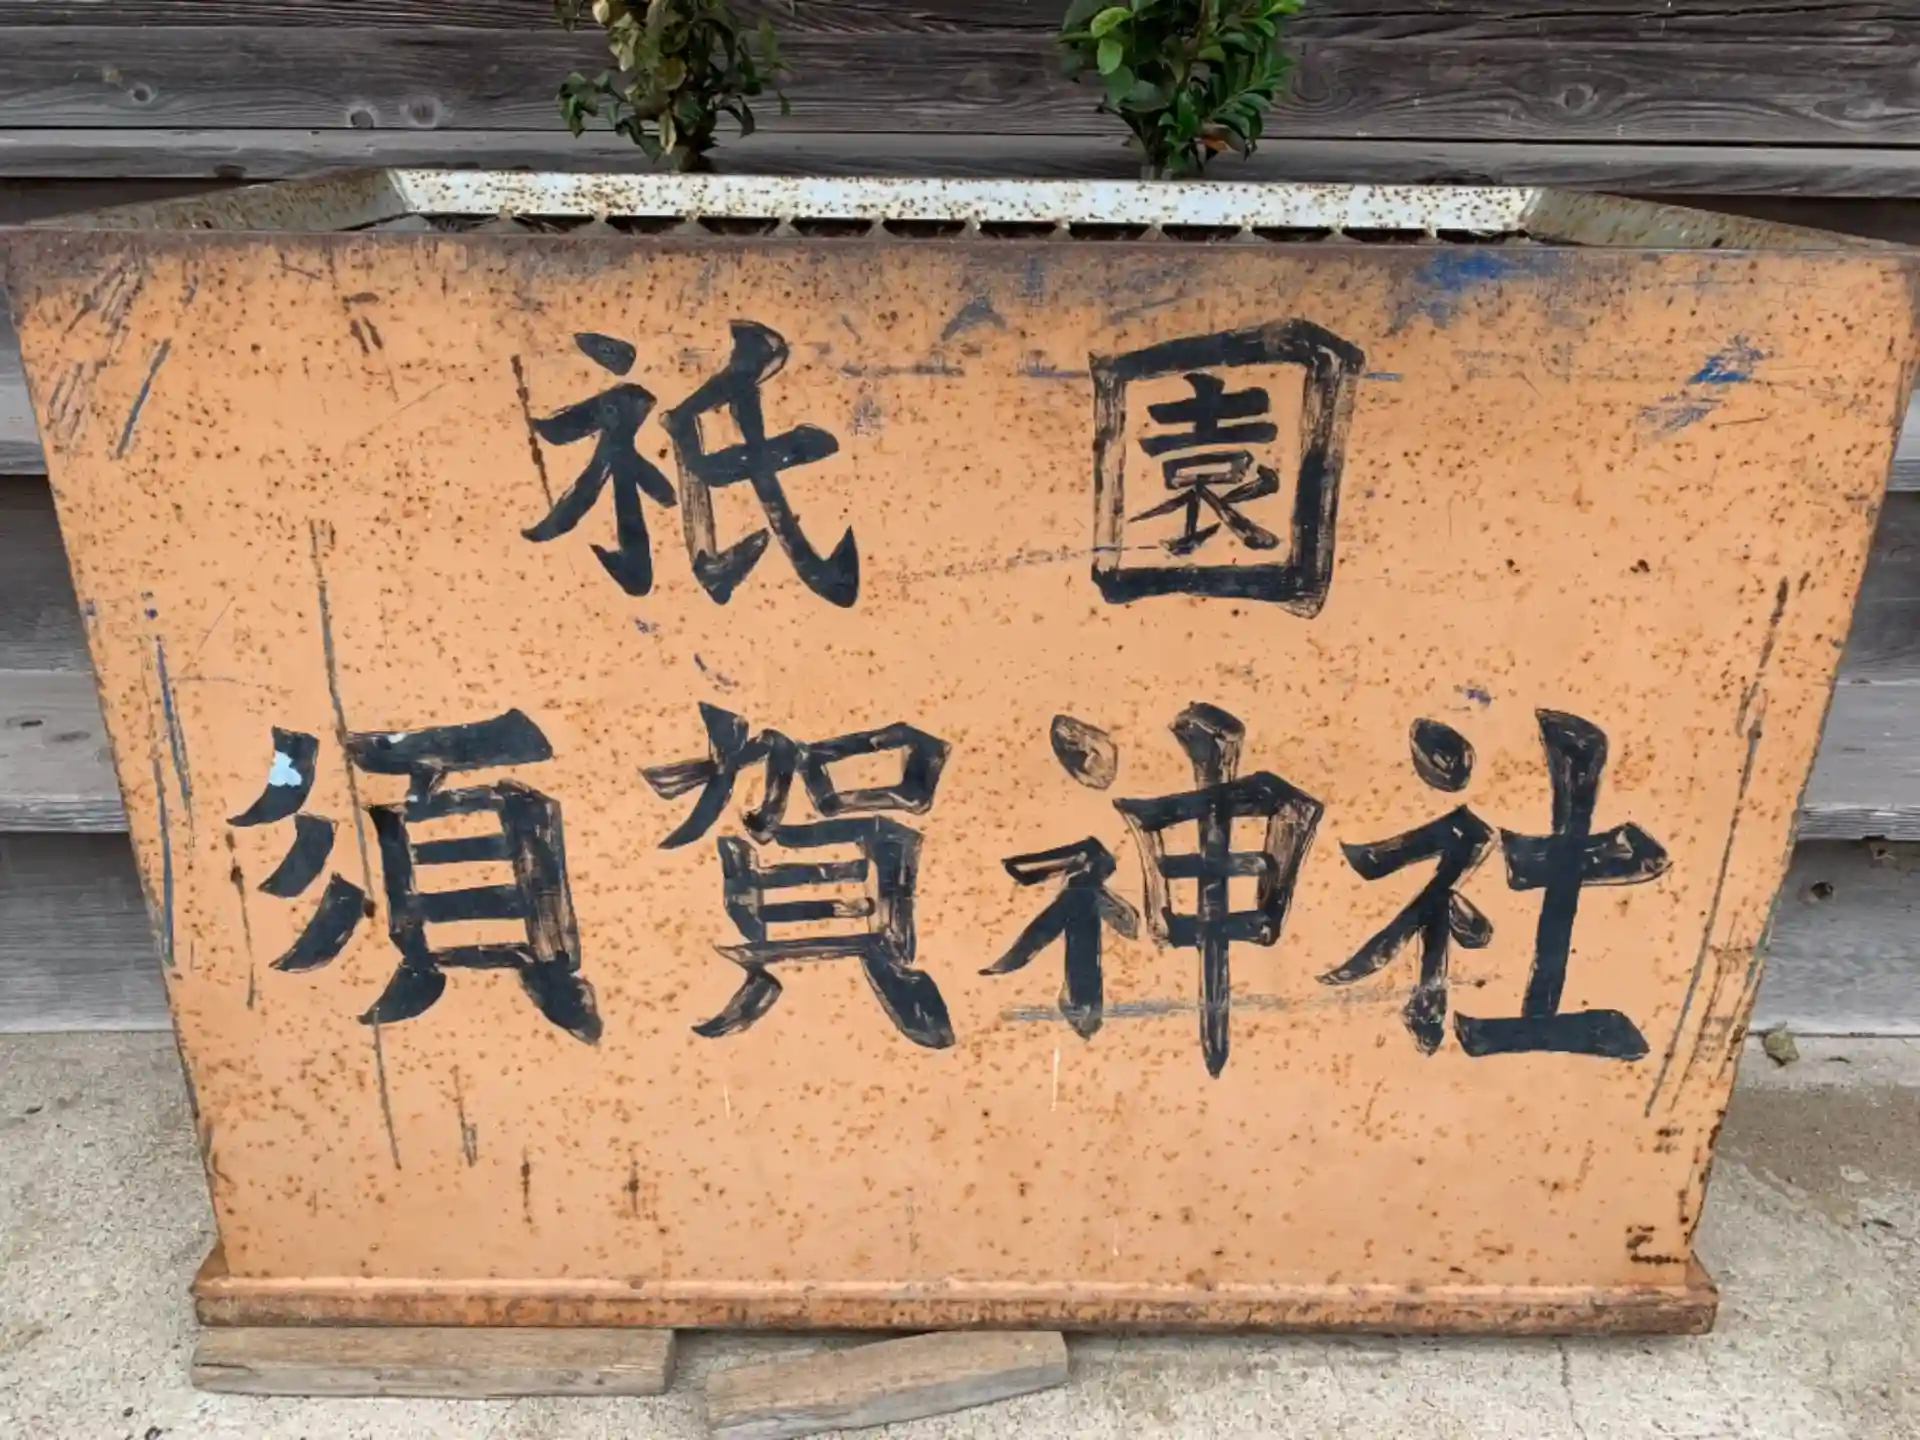 祇園
須賀神社